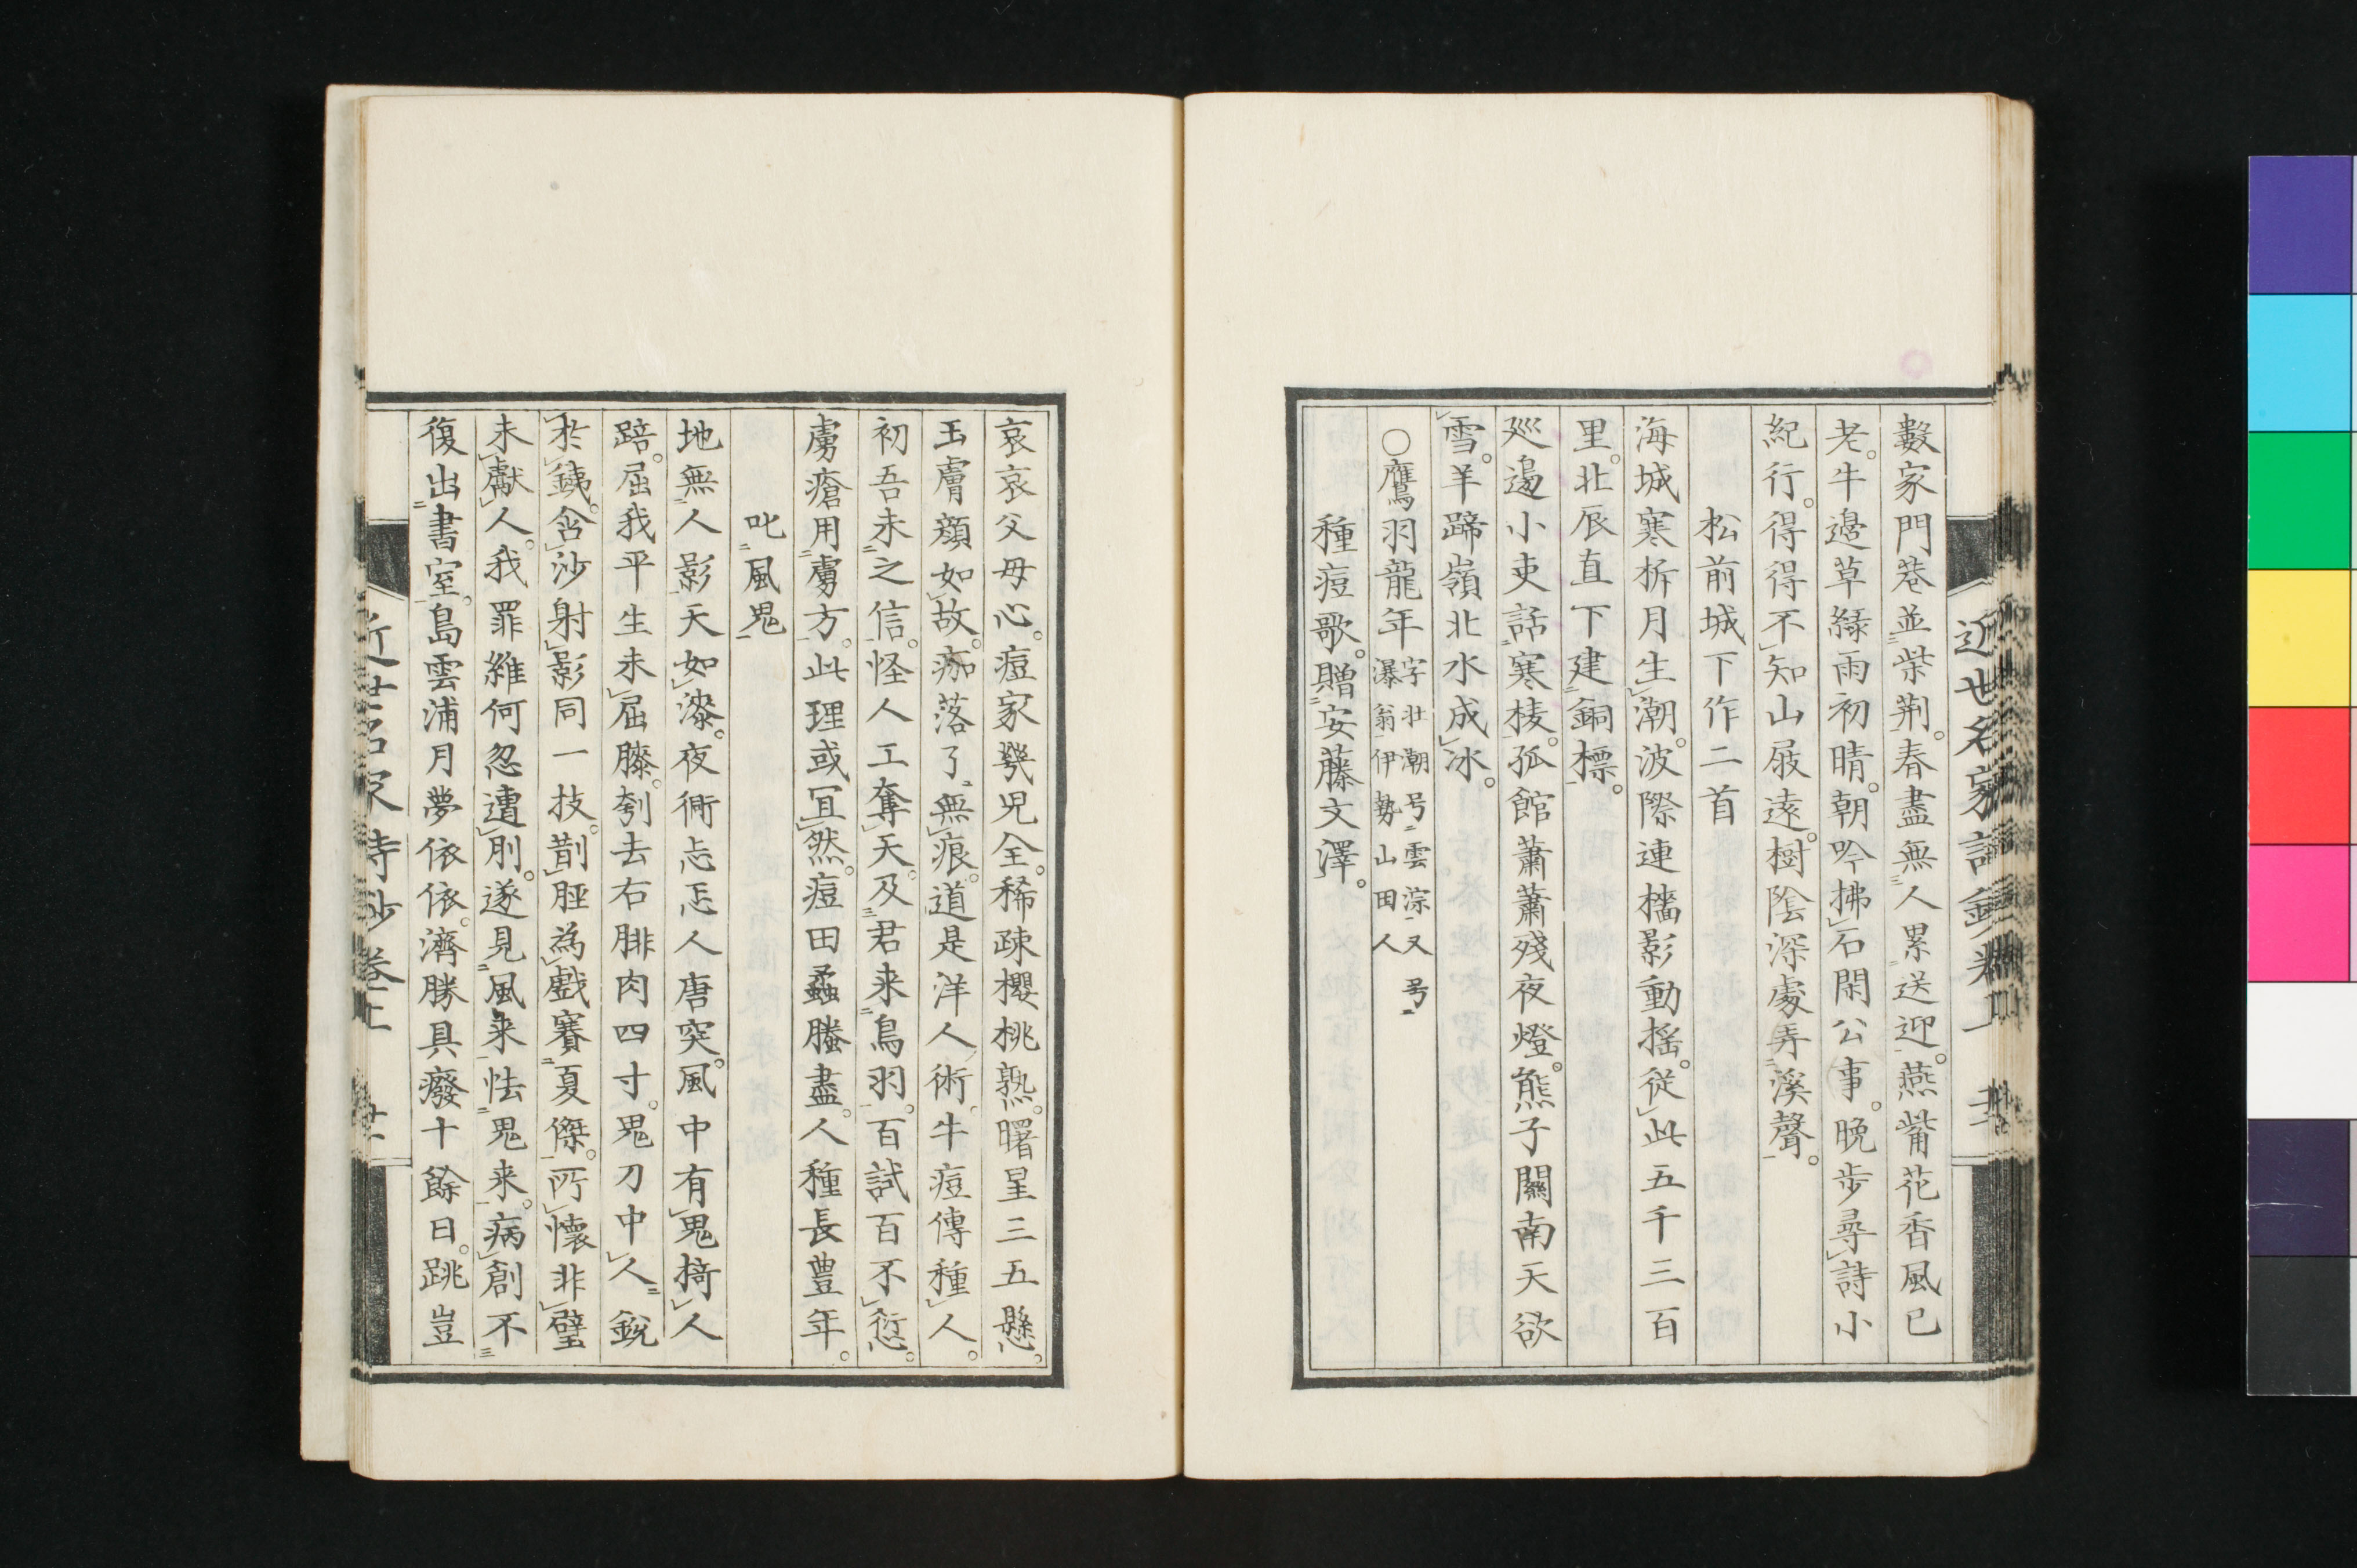 數家門巷並柴荆。春盡無人累送迎。燕觜花香風已
老。牛邉草緑雨初晴。朝吟拂石閑公事。晩歩尋詩小
紀行。得得不知山屐遠。樹陰深處弄溪聲。
松前城下作二首
海城寒柝月生潮。波際連檣影動揺。従此五千三百
里。北辰直下建銅標。
廵邉小吏話寒棱。孤館蕭蕭殘夜燈。熊子關南天欲
雪。羊蹄嶺北水成冰。
○鷹羽龍年字壮潮号雲淙又号
瀑翁伊勢山田人
種痘歌。贈安藤文澤。
哀哀父母心。痘家幾児全。稀疎櫻桃熟。曙星三五懸。
玉膚顔如故。痂落了無痕。道是洋人術。牛痘傳種人。
初吾未之信。怪人工奪天。及君来鳥羽。百試百不愆。
虜瘡用虜方。此理或冝然。痘田蟊螣盡。人種長豊年。
叱風鬼
地無人影天如漆。夜衕忐忑人唐突。風中有鬼掎人
踣。屈我平生未屈膝。刳去右腓肉四寸。鬼刀中人銳
於銕。含沙射影同一技。斮脛為戯賽夏傑。所懷非璧
未獻人。我罪維何忽遭刖。遂見風来怯鬼来。病創不
復出書室。島雲浦月夢依依。濟勝具癈十餘日。跳豈